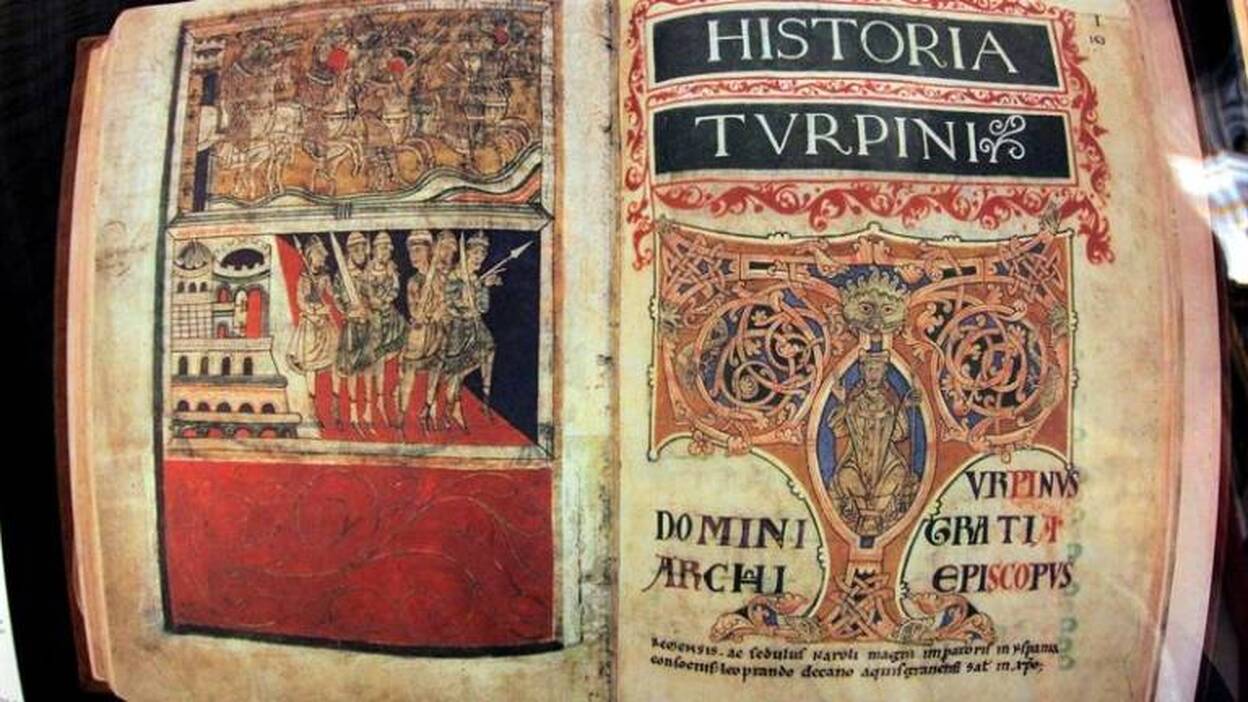 HISTORIA
TVRPINI
I
163
VRPINVS
DOMINI GRATIA
ARCHI EPISCOPVS
REMENSIS. ac sedulus Karoli magni imperatoris in yspania
consocius leoprando decano aquisgranensi sat in xpo;